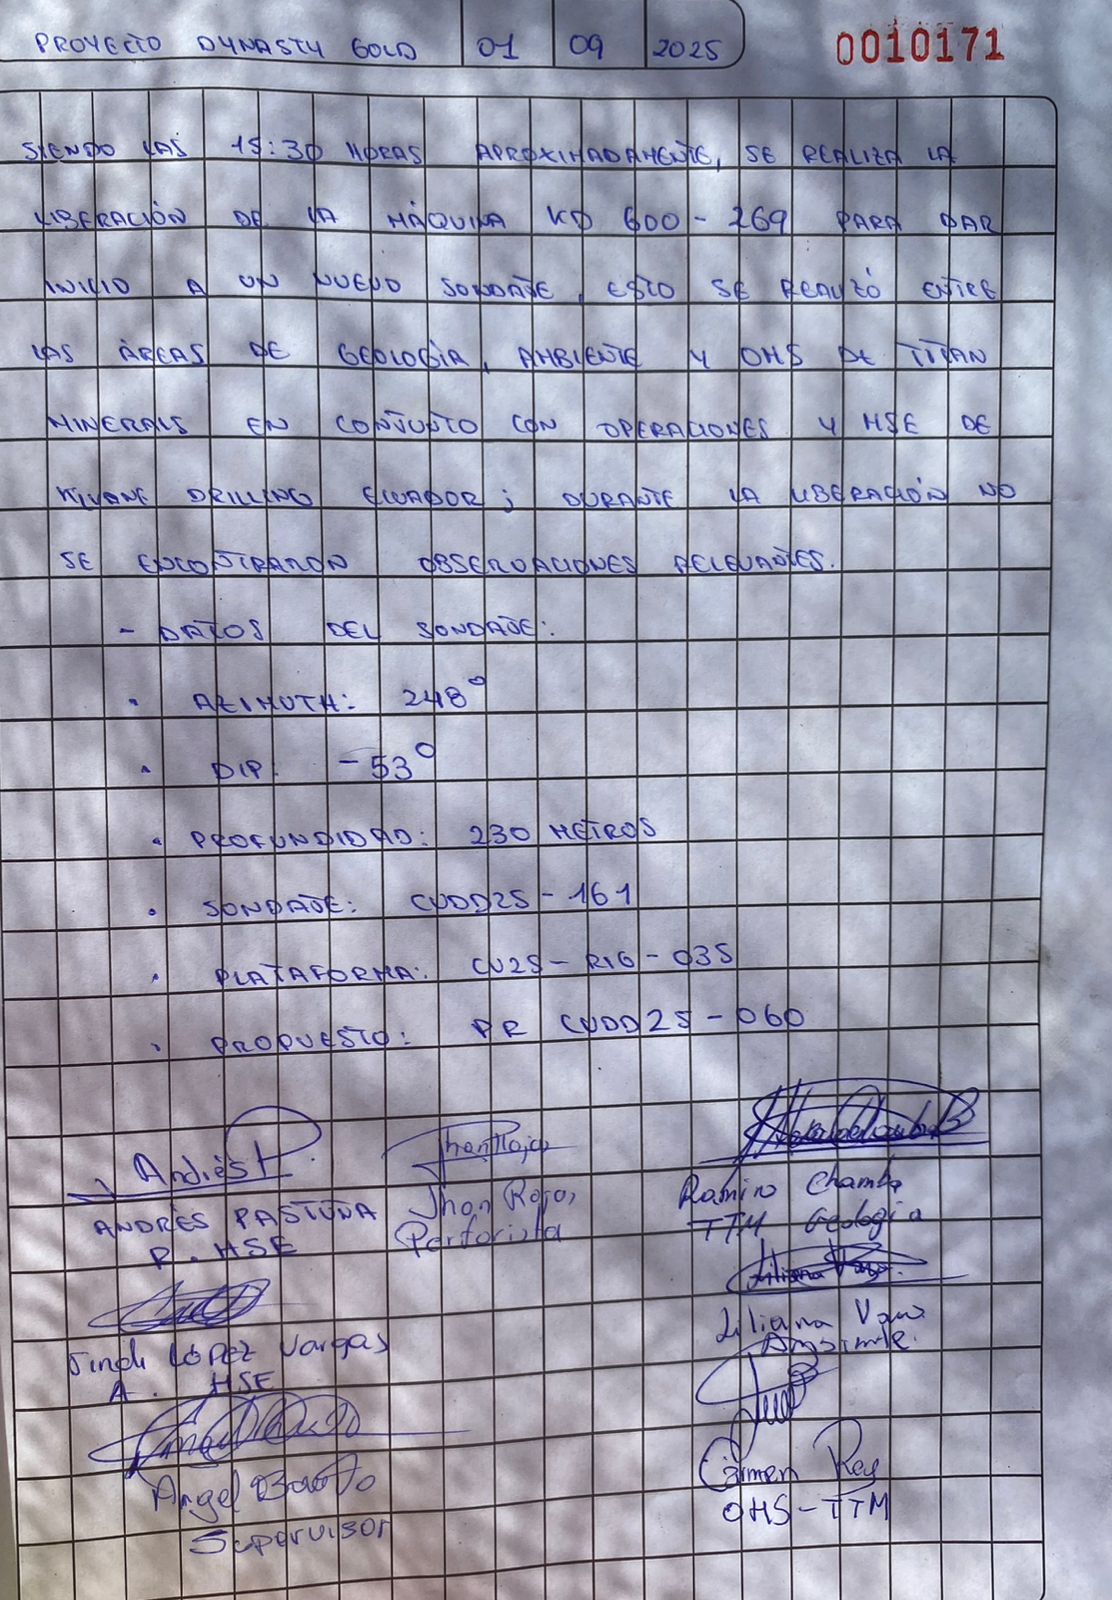 PROYECTO DYNASTY GOLD 01 09 2025 0010171
SIENDO LAS 15:30 HORAS APROXIMADAMENTE, SE REALIZA LA
LIBERACIÓN DE LA MÁQUINA KD 600-269 PARA DAR
INICIO A UN NUEVO SONDAJE, ESTO SE REALIZÓ ENTRE
LAS ÁREAS DE GEOLOGÍA, AMBIENTE Y OHS DE TITAN
MINERALS EN CONJUNTO CON OPERACIONES Y HSE DE
KLUANE DRILLING ECUADOR; DURANTE LA LIBERACIÓN NO
SE ENCONTRARON OBSERVACIONES RELEVANTES.
- DATOS DEL SONDAJE:
• AZIMUTH: 248°
• DIP: -53°
• PROFUNDIDAD: 230 METROS
• SONDAJE: CVDD25-161
• PLATAFORMA: CV25-RIG-035
• PROPUESTO: PR CVDD25-060
Andrés P.
ANDRÉS PASTUÑA
R. HSE
Jhon Rojas
Jhon Rojas
Perforista
Ramiro Chamba
TTM Geología
Liliana
Liliana
Ambiente.
López Vargas
A. HSE
Angel
Supervisor
Carmen Rey
OHS-TTM